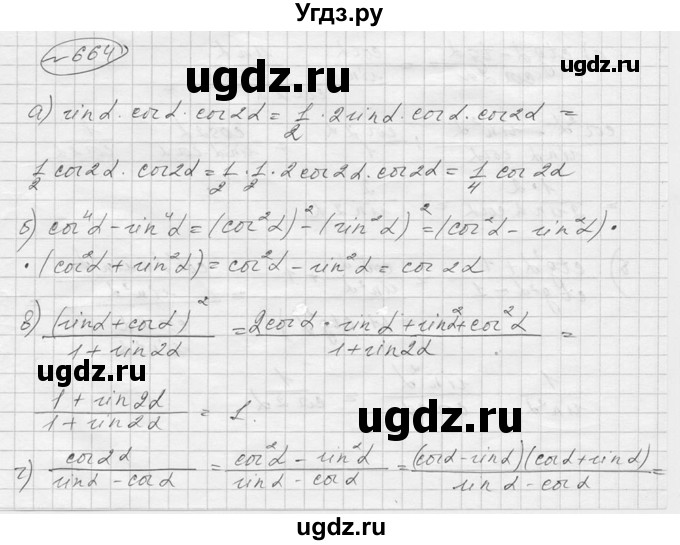 Угдз.ру
№664
ugdz.ru
ugdz.ru
а) sinα · cosα · cos2α = 1/2 · 2sinα · cosα · cos2α =
1/2 cos2α · cos2α = 1/2 · 1/2 · 2cos2α · cos2α = 1/4 cos2α
б) cos⁴α - sin⁴α = (cos²α)² - (sin²α)² = (cos²α - sin²α) ·
· (cos²α + sin²α) = cos²α - sin²α = cos2α
в) (sinα + cosα)² / 1 + sin2α = 2cosα · sinα + sin²α + cos²α / 1 + sin2α =
ugdz.ru
ugdz.ru
1 + sin2α / 1 + sin2α = 1.
г) cos2α / sinα - cosα = cos²α - sin²α / sinα - cosα = (cosα - sinα)(cosα + sinα) / sinα - cosα =
ugdz.ru